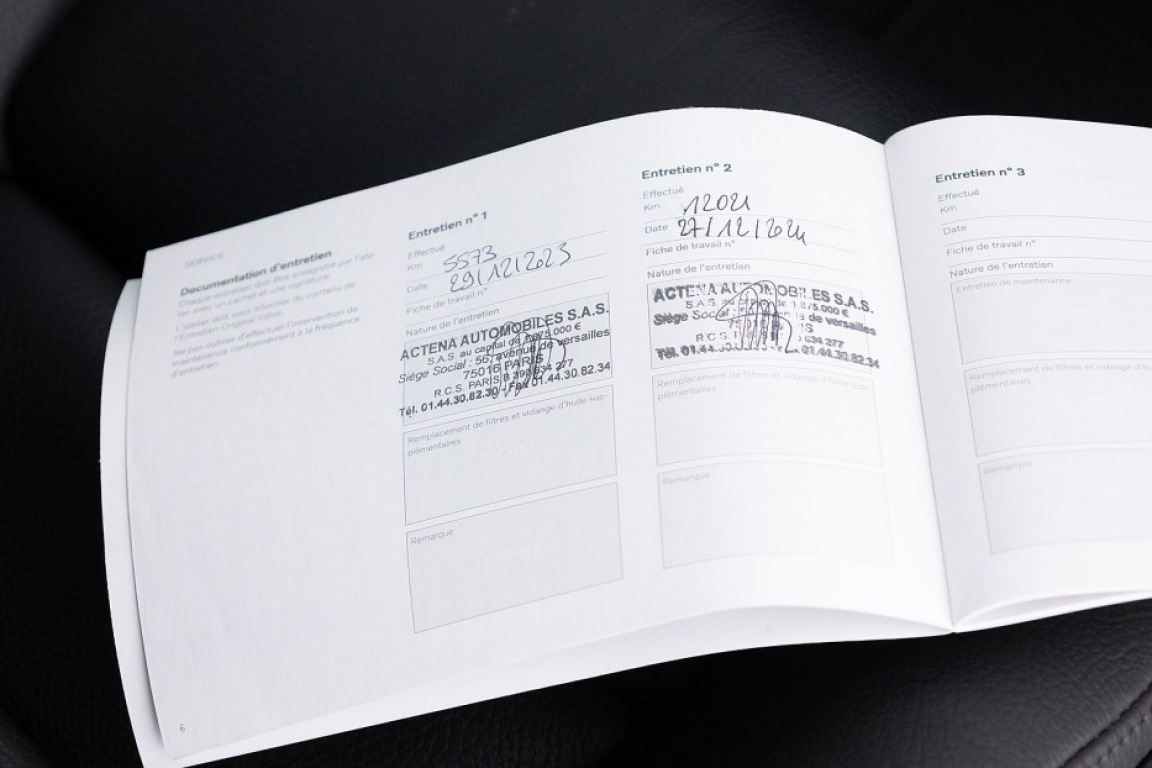 SERVICE
Documentation d'entretien
Chaque entretien doit être enregistré par l'ate-
lier avec un cachet et une signature.
L'atelier doit vous informer du contenu de
l'Entretien Original Volvo.
Ne pas oublier d'effectuer l'intervention de
maintenance conformément à la fréquence
d'entretien.
6
Entretien n° 1
Effectué
Km 5573
Date 29/12/2023
Fiche de travail n°
Nature de l'entretien
ACTENA AUTOMOBILES S.A.S.
S.A.S. au capital de 1.875.000 €
Siège Social : 56, avenue de versailles
75016 PARIS
R.C.S. PARIS B 634 277
Tél. 01.44.30.82.30 - Fax 01.44.30.82.34
Remplacement de filtres et vidange d'huile sup-
plémentaires
CACHET
Remarque
CACHET
Entretien n° 2
Effectué
Km 12021
Date 27/12/2024
Fiche de travail n°
Nature de l'entretien
ACTENA AUTOMOBILES S.A.S.
S.A.S. au de 1.875.000 €
Siège Social : de versailles
R.C.S. 634 277
Tél. 01.44. 01.44.30.82.34
Remplacement de filtres et vidange d'huile sup-
plémentaires
Remarque
Entretien n° 3
Effectué
Km
Date
Fiche de travail n°
Nature de l'entretien
Entretien de maintenance
Remplacement de filtres et vidange d'hu
plémentaires
Remarque